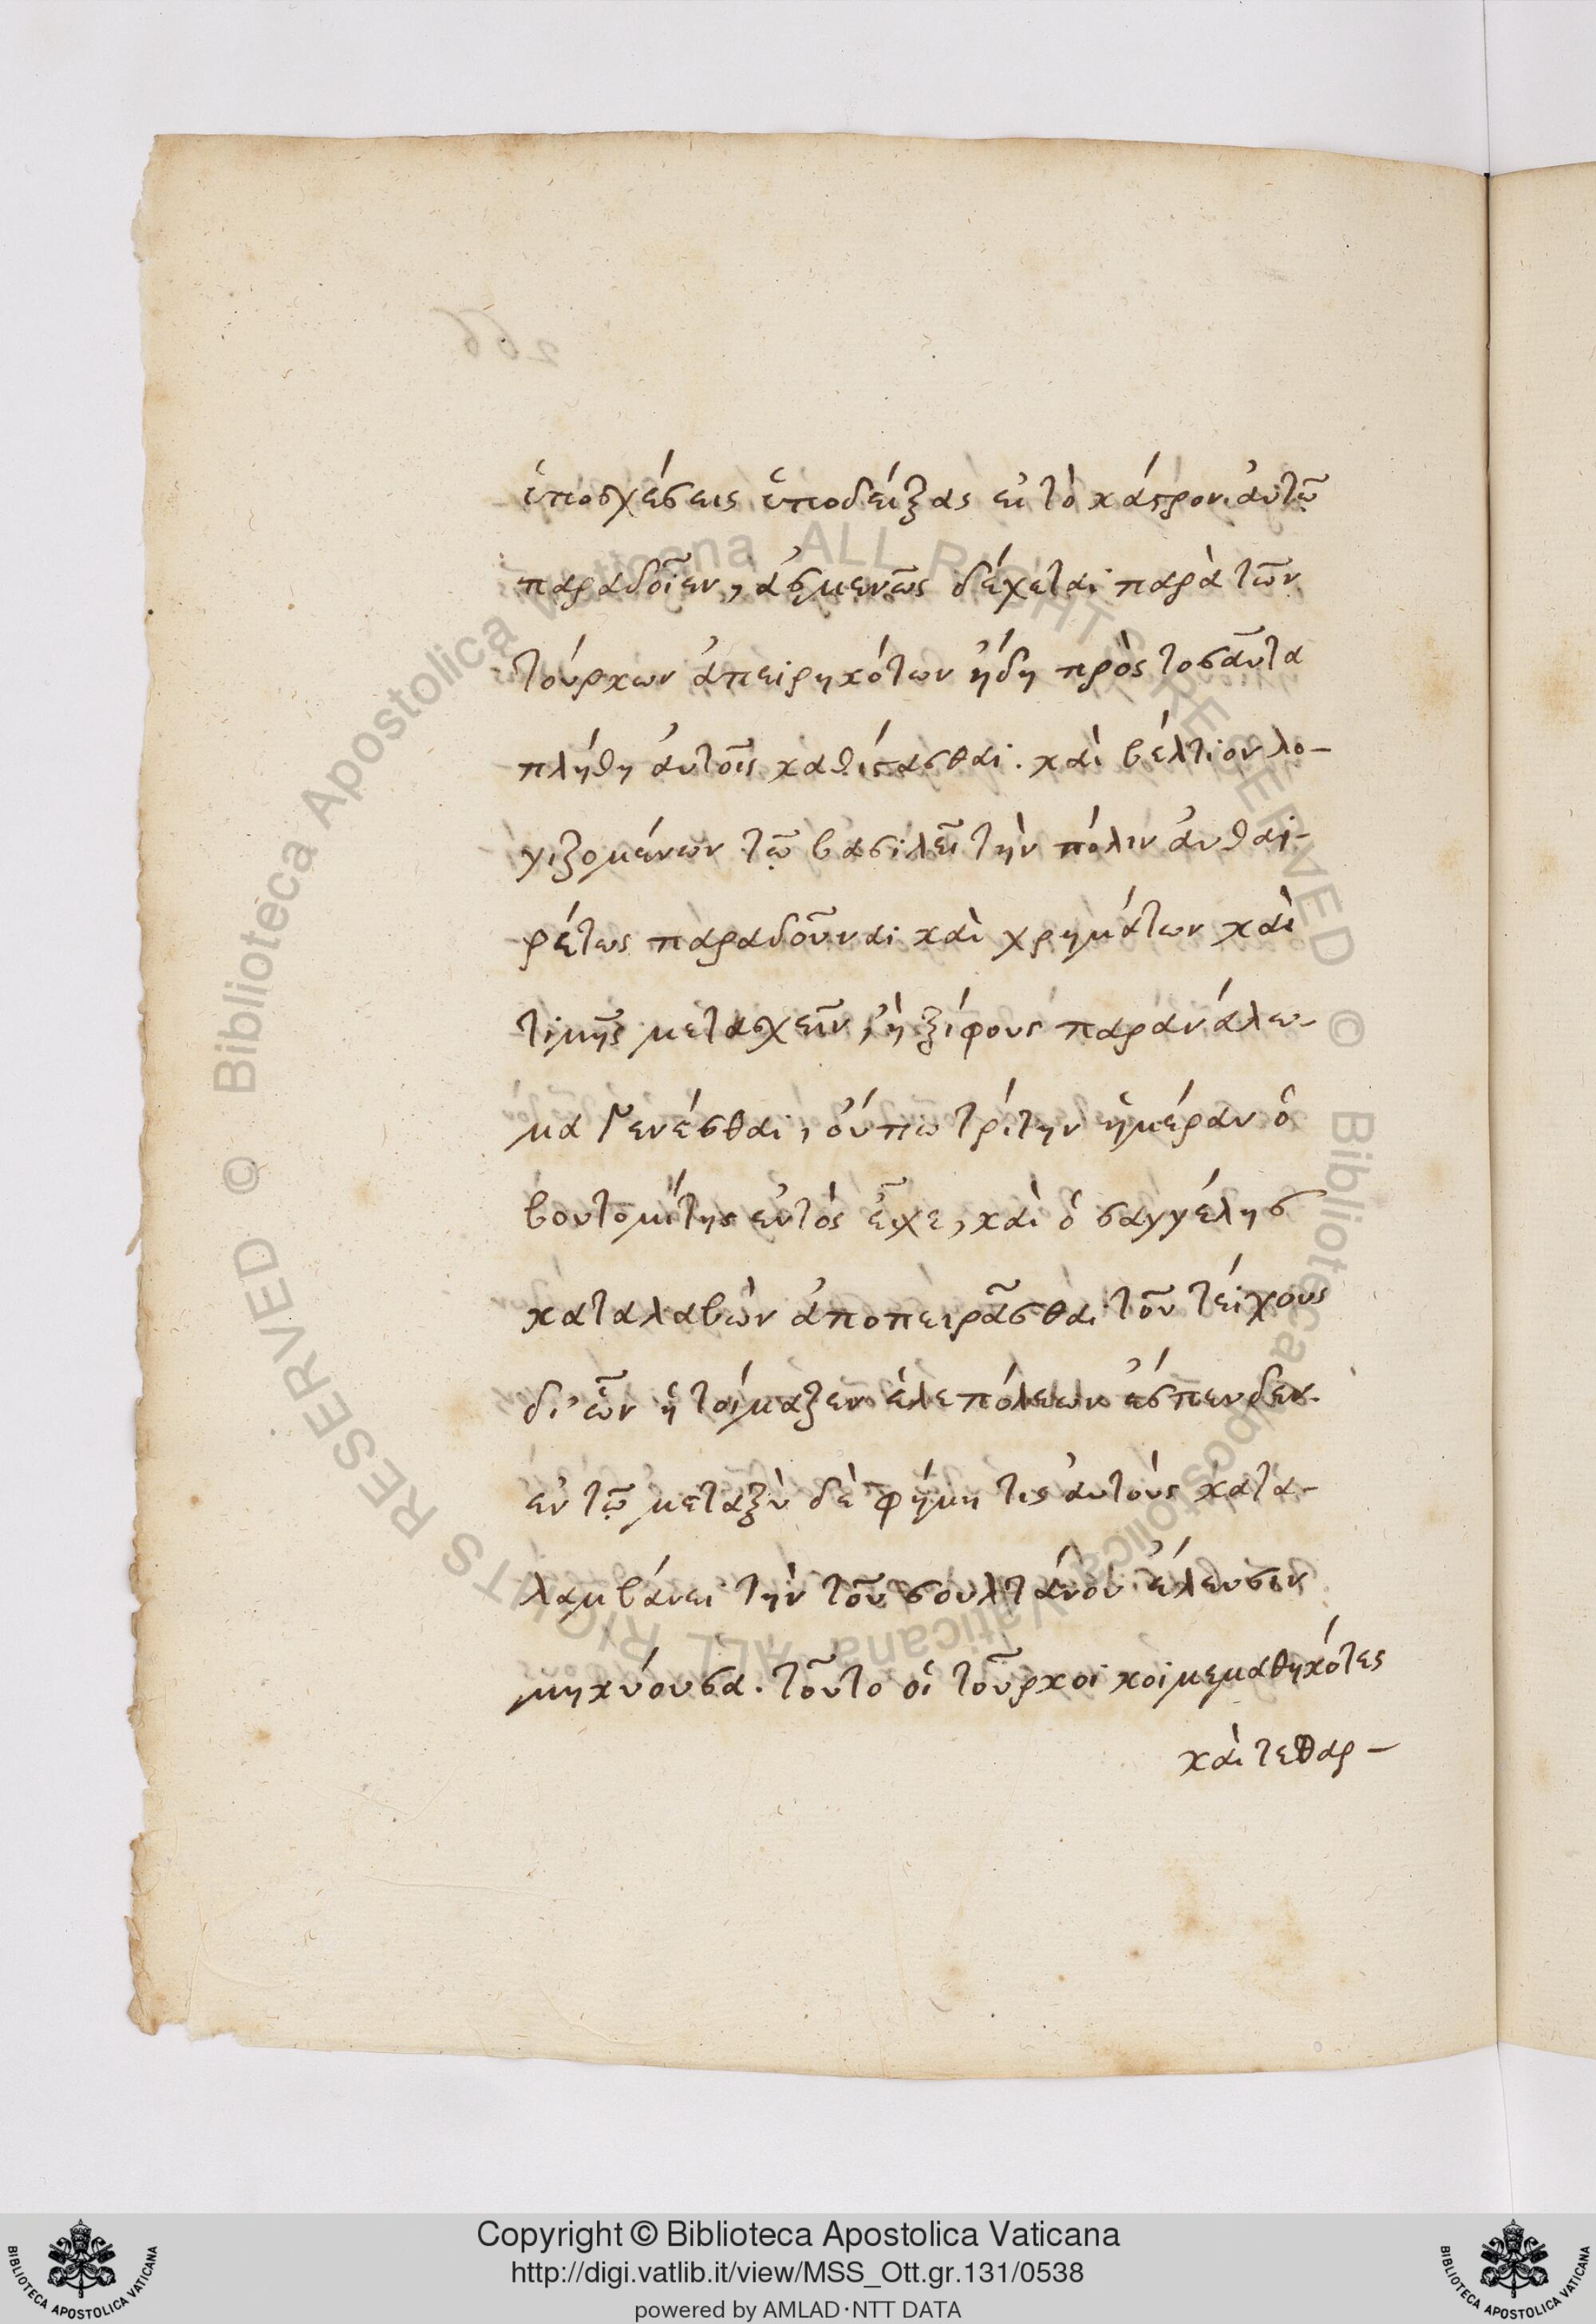 ὑποσχέσεις ὑποδείξας εἰ τὸ κάστρον αὐτῷ
παραδοῖεν, ἀσμενῶς δέχεται παρὰ τῶν
τούρκων ἀπειρηκότων ἤδη πρὸς τοσαῦτα
πλήθη αὐτοῖς καθίστασθαι. καὶ βέλτιον λο-
γιζομένων τῷ βασιλεῖ τὴν πόλιν αὐθαι-
ρέτως παραδοῦναι καὶ χρημάτων καὶ
τιμῆς μετασχεῖν, ἢ ξίφους παρανάλω-
μα γενέσθαι, οὔπω τρίτην ἡμέραν ὁ
βουτομίτης ἐντὸς εἶχε, καὶ ὁ σαγγέλης
καταλαβὼν ἀποπειρᾶσθαι τοῦ τείχους
δι' ὧν ἡτοίμαζεν ἑλεπόλεων ἔσπευδεν.
ἐν τῷ μεταξὺ δὲ φήμη τις αὐτοὺς κατα-
λαμβάνει τὴν τοῦ σουλτάνου ἔλευσιν
μηνύουσα. τοῦτο οἱ τοῦρκοι μεμαθηκότες
καὶ τεθαρ-
266
Copyright © Biblioteca Apostolica Vaticana
http://digi.vatlib.it/view/MSS_Ott.gr.131/0538
powered by AMLAD·NTT DATA
BIBLIOTECA APOSTOLICA VATICANA
BIBLIOTECA APOSTOLICA VATICANA
© Biblioteca Apostolica Vaticana ALL RIGHTS RESERVED © Biblioteca Apostolica Vaticana ALL RIGHTS RESERVED